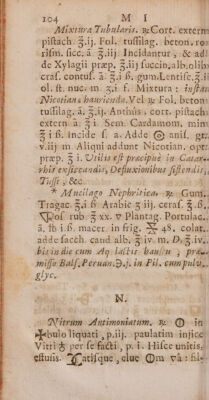 104 M I
Mixtura Tubularis. ℞ Cort. extern.
pistach. ℥.ij. Fol. tussilag. beton. ro-
rism. sicc. ā ℥.iij Incidantur, & ad
de Xylagii præp. ℥.iij succin. alb. olibr
cras. contus. ā ℥.i ß. gum. Lentisc. ℥.ii
ol. st. nuc. m. ℥.i f. Mixtura : instar
Nicotian. haurienda. Vel ℞ Fol. beton.
tussilag. ā. ℥.ij. Anthus. cort. pistach.
extern ā ℥ i. Sem. Cardamom. min
℥ i ß. Incide s. a. Adde ☉ anis. gtt.
v. iij m Aliqui addunt Nicotian. opt.
præp. ℥ i. Utilis est præcipuè in Catar-
rhis exsiccandis, Defluxionibus sistendis,
Tussi, &c
* Mucilago Nephritica. ℞ Gum.
Tragac. ℥.i ß Arabic ℥ iij. ceras. ℥ i.
▽ Ros. rub. ℥ xx. ▽ Plantag. Portulac.
ā. ℔ i ß. macer. in frig. 48. colat.
adde sacch. cand alb. ℥ iv. m D. ℥.iv.
bis in die cum Aq lactis haustu, præ-
misso Bals. Peruan. ℈.j. in Pil. cum pulv.
glyc.
N.
Nitrum Antimoniatum. ℞ in
bulo liquati, p. iij. paulatim injice
Vitri ♁ per se facti, p. i. Hisce unitis,
satisque, elue